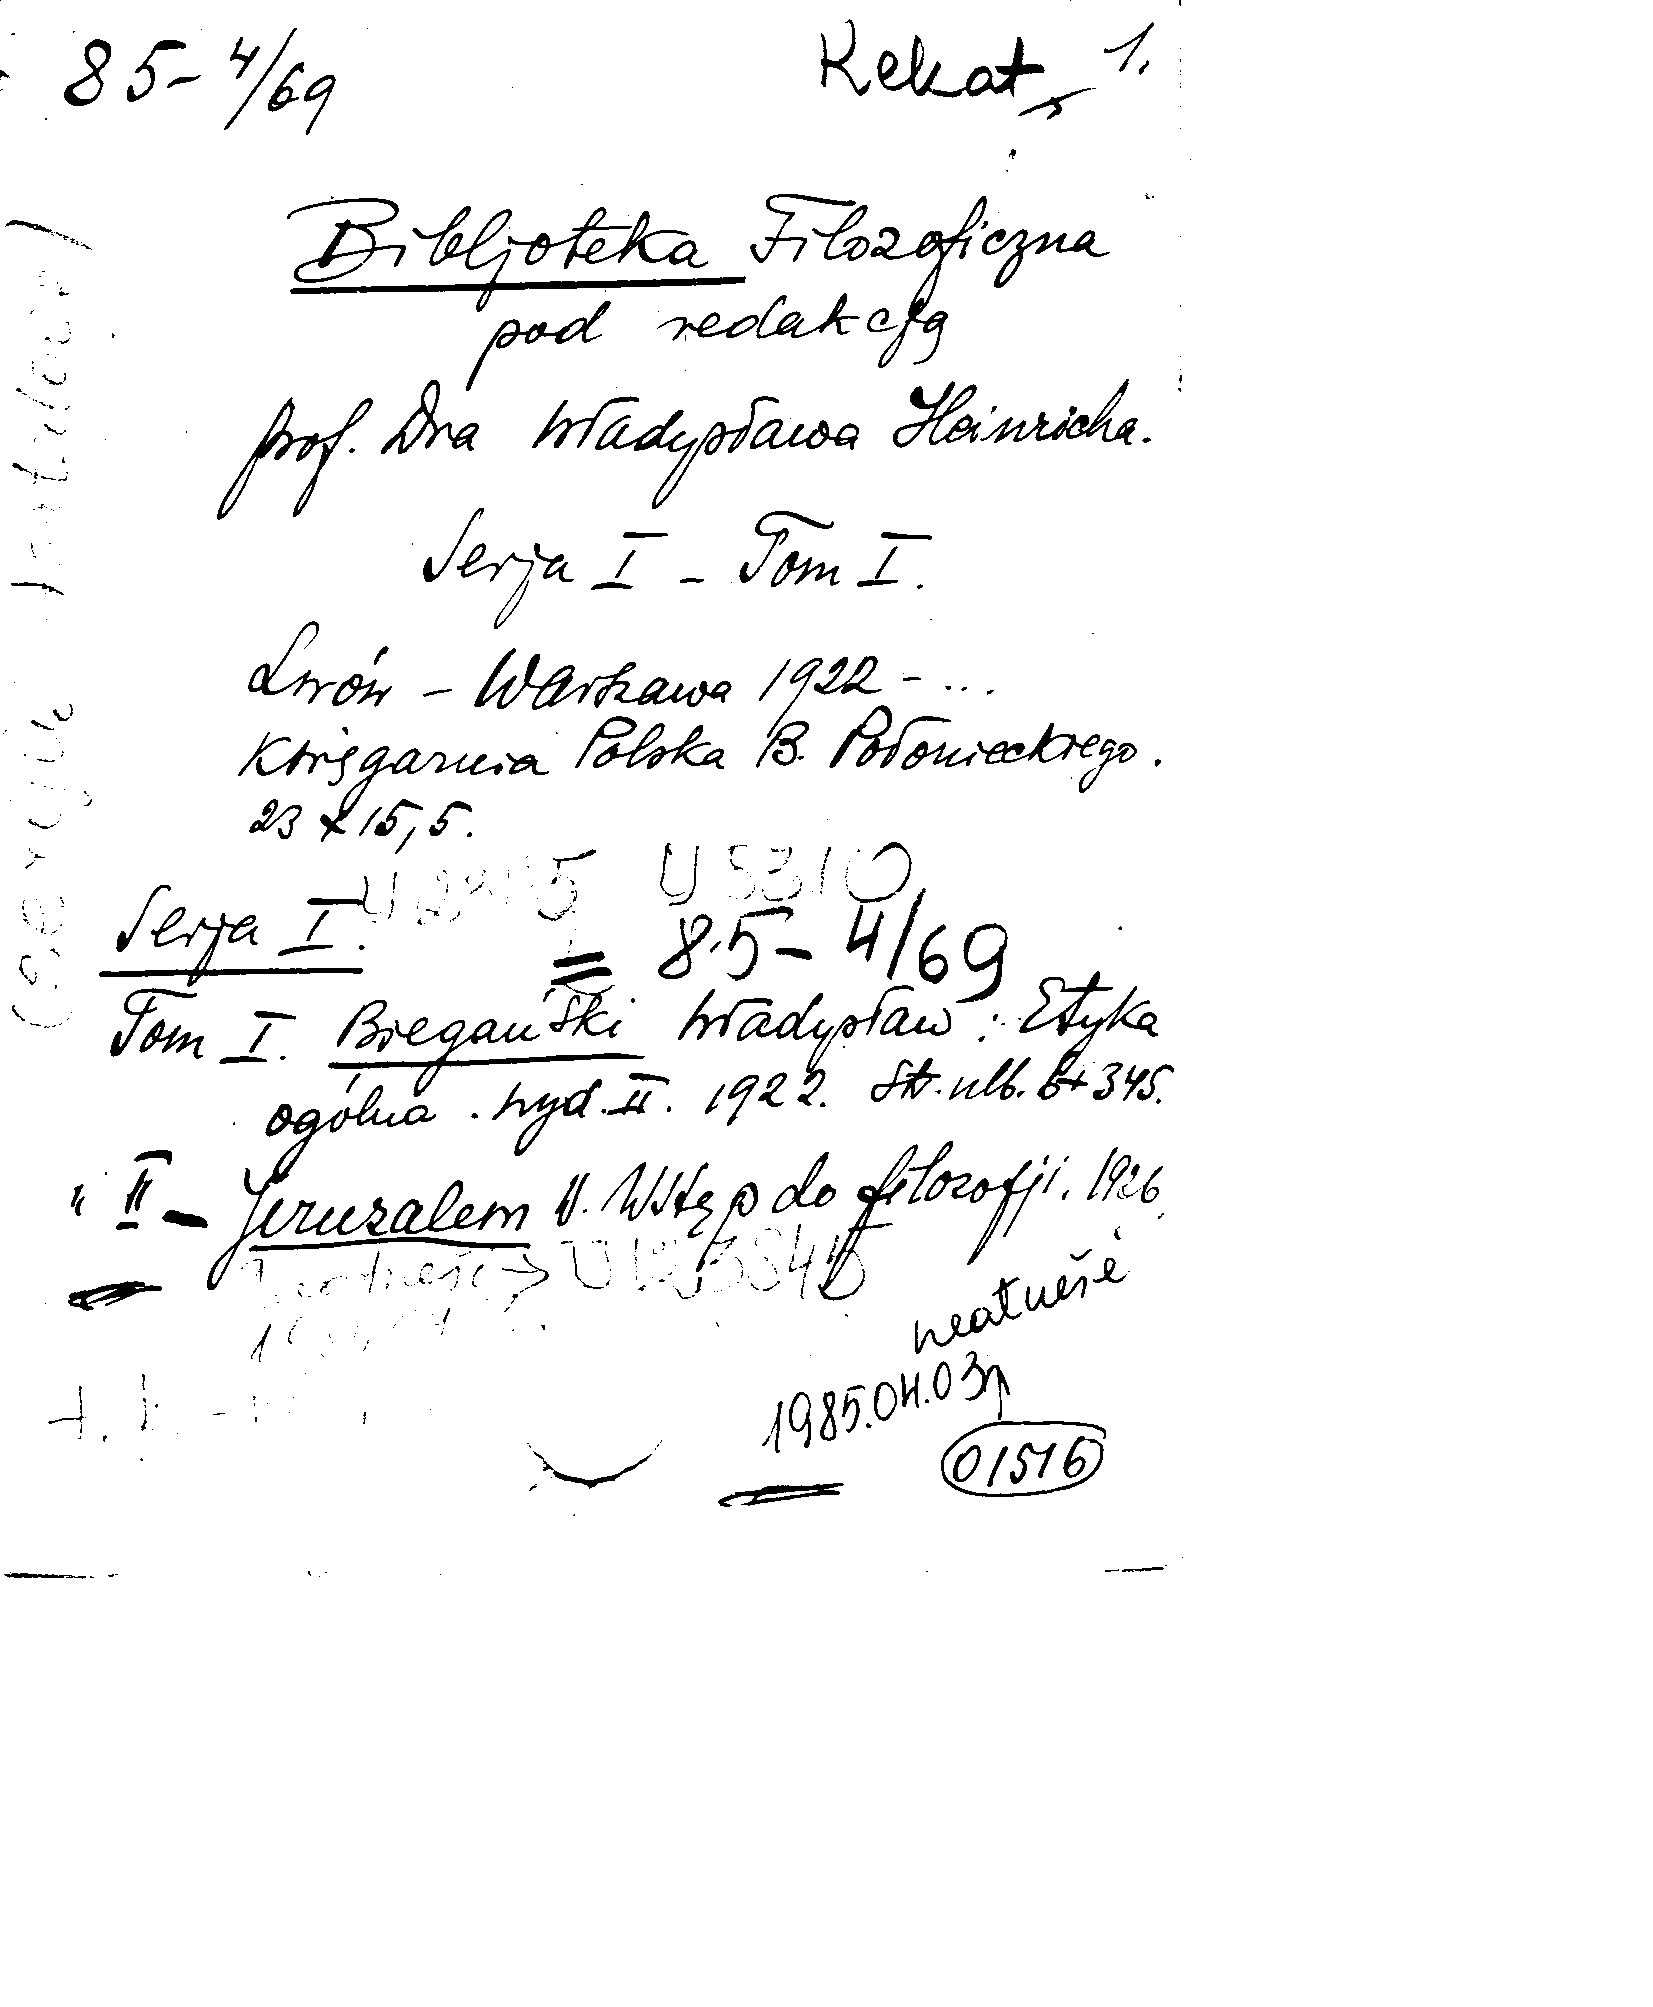 85-4/69
Rekat 1.
Bibljoteka Filozoficzna
pod redakcją
prof. Dra Władysława Heinricha.
Serja I - Tom I.
Lwów - Warszawa 1922 - ...
Księgarnia Polska B. Połonieckiego.
23 x 15,5.
U 5310
Serja I.
= 85-4/69
Tom I. Biegański Władysław: Etyka
ogólna. wyd. II. 1922. Str. nlb. 6+345.
" II - Jeruzalem W. Wstęp do filozofji. 1926
neatnešė
1985.04.03
01516